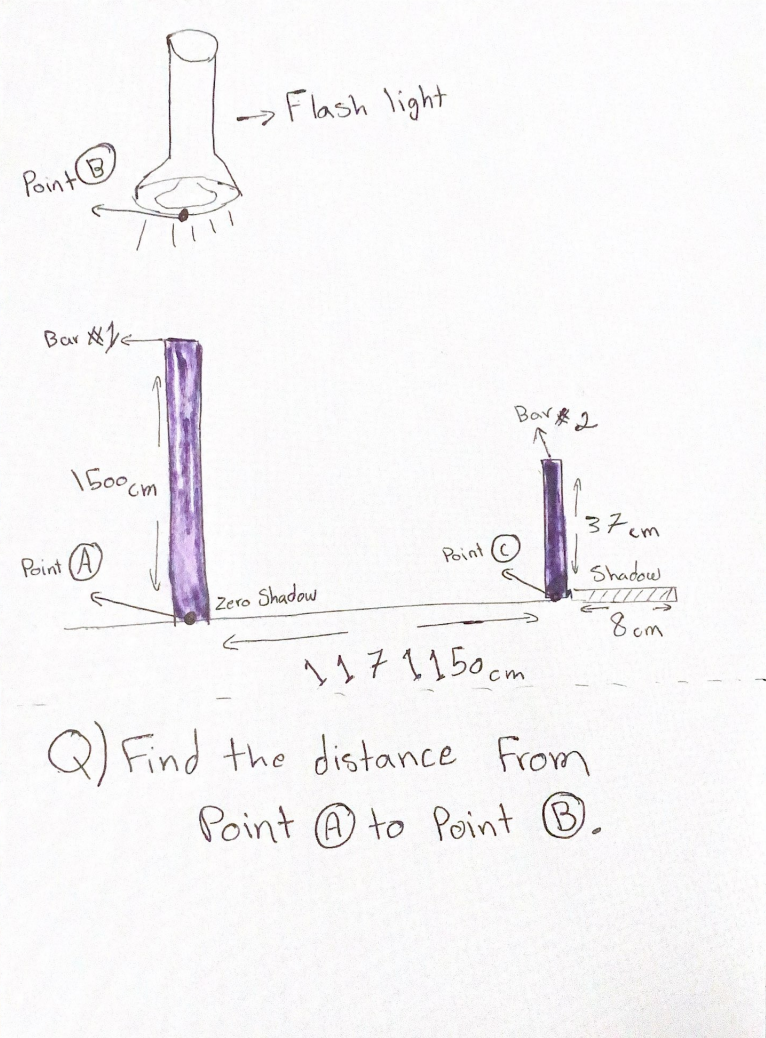 → Flash light
Point B
Bar #1
1500cm
Point A
Zero Shadow
Bar # 2
37cm
Point C
Shadow
8cm
1171150cm
Q) Find the distance From
Point A to Point B.